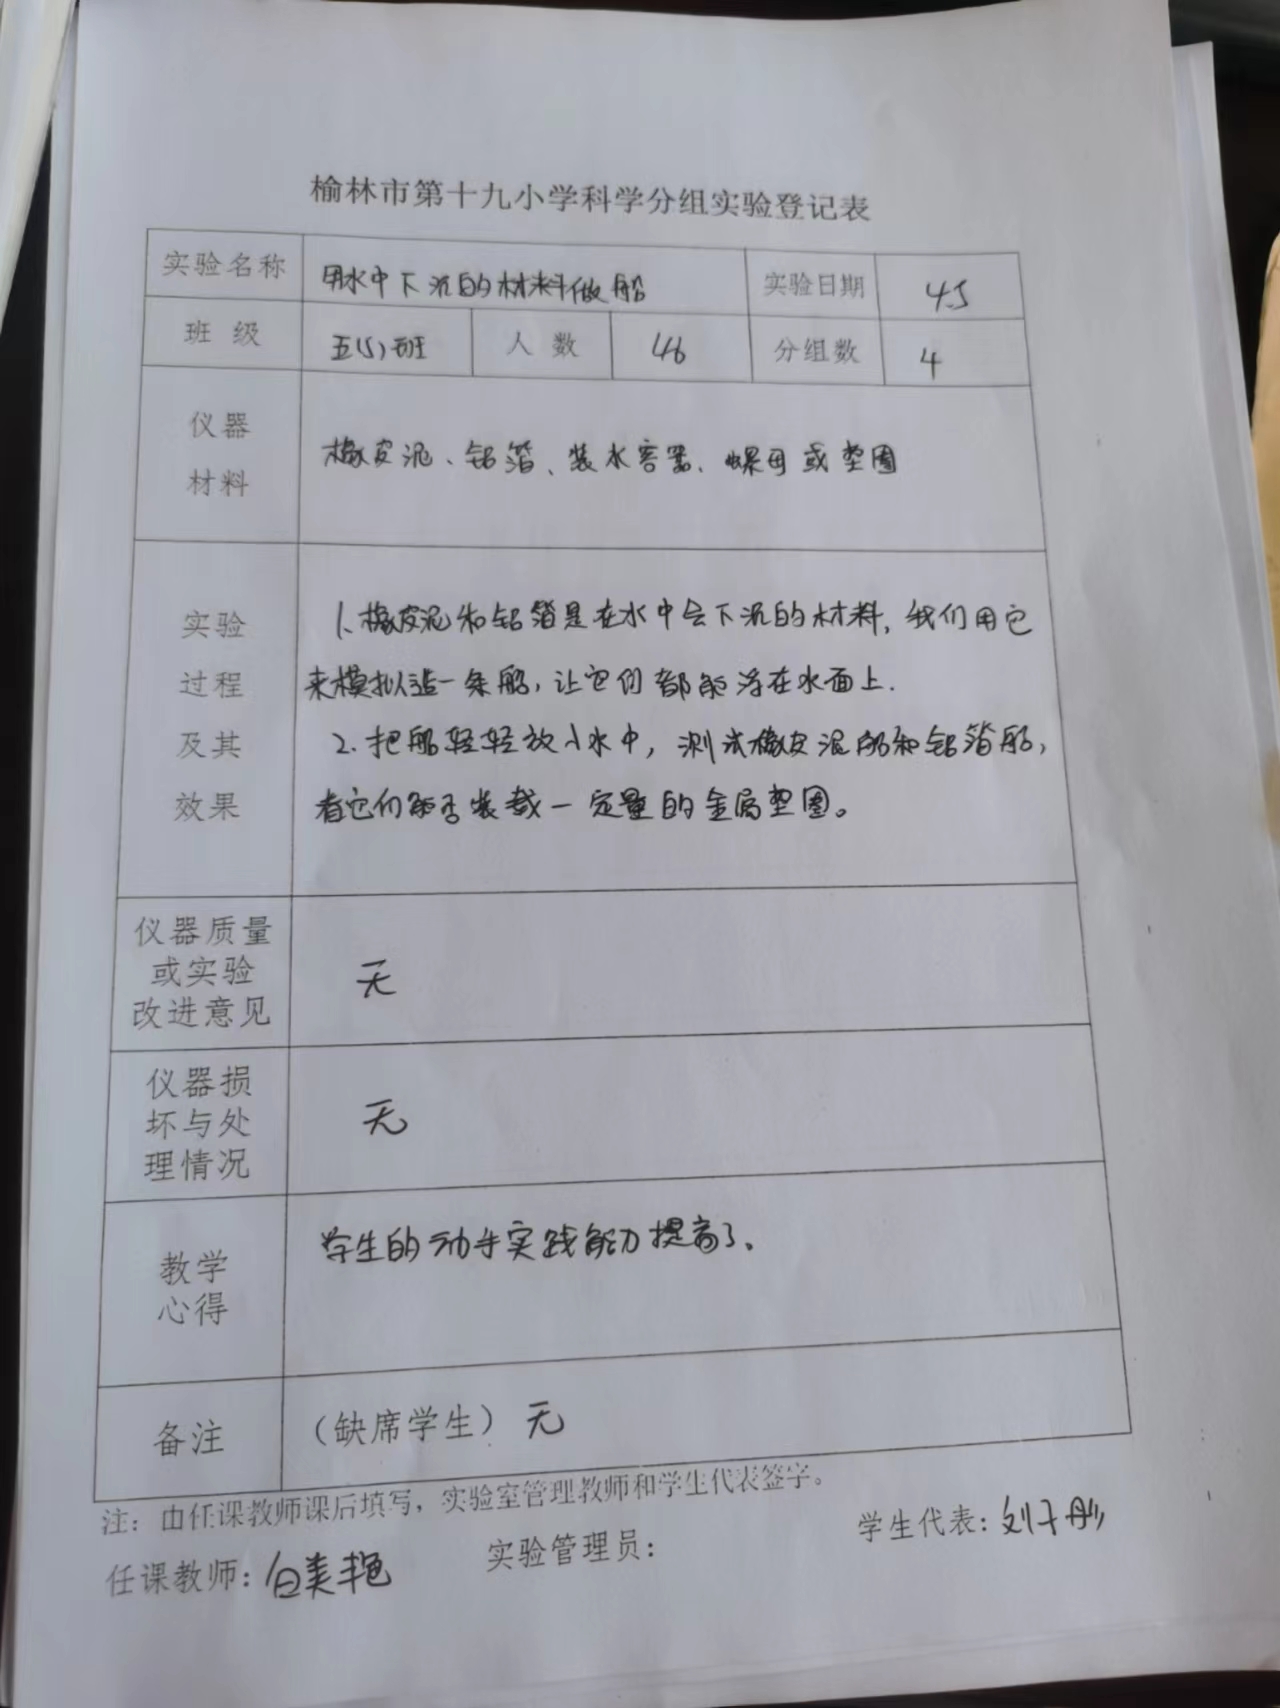 榆林市第十九小学科学分组实验登记表
实验名称 用水中下沉的材料做船 实验日期 4.5
班级 五(5)班 人数 46 分组数 4
仪器
材料
橡皮泥、铝箔、装水容器、螺母或垫圈
实验
过程
及其
效果
1.橡皮泥和铝箔是在水中会下沉的材料,我们用它
来模拟造一条船,让它们都能浮在水面上.
2.把船轻轻放入水中,测试橡皮泥船和铝箔船,
看它们能否装载一定量的金属垫圈。
仪器质量
或实验
改进意见
无
仪器损
坏与处
理情况
无
教学
心得
学生的动手实践能力提高了.
备注 (缺席学生) 无
注：由任课教师课后填写，实验室管理教师和学生代表签字。
任课教师: 白美艳 实验管理员: 学生代表: 刘子彤